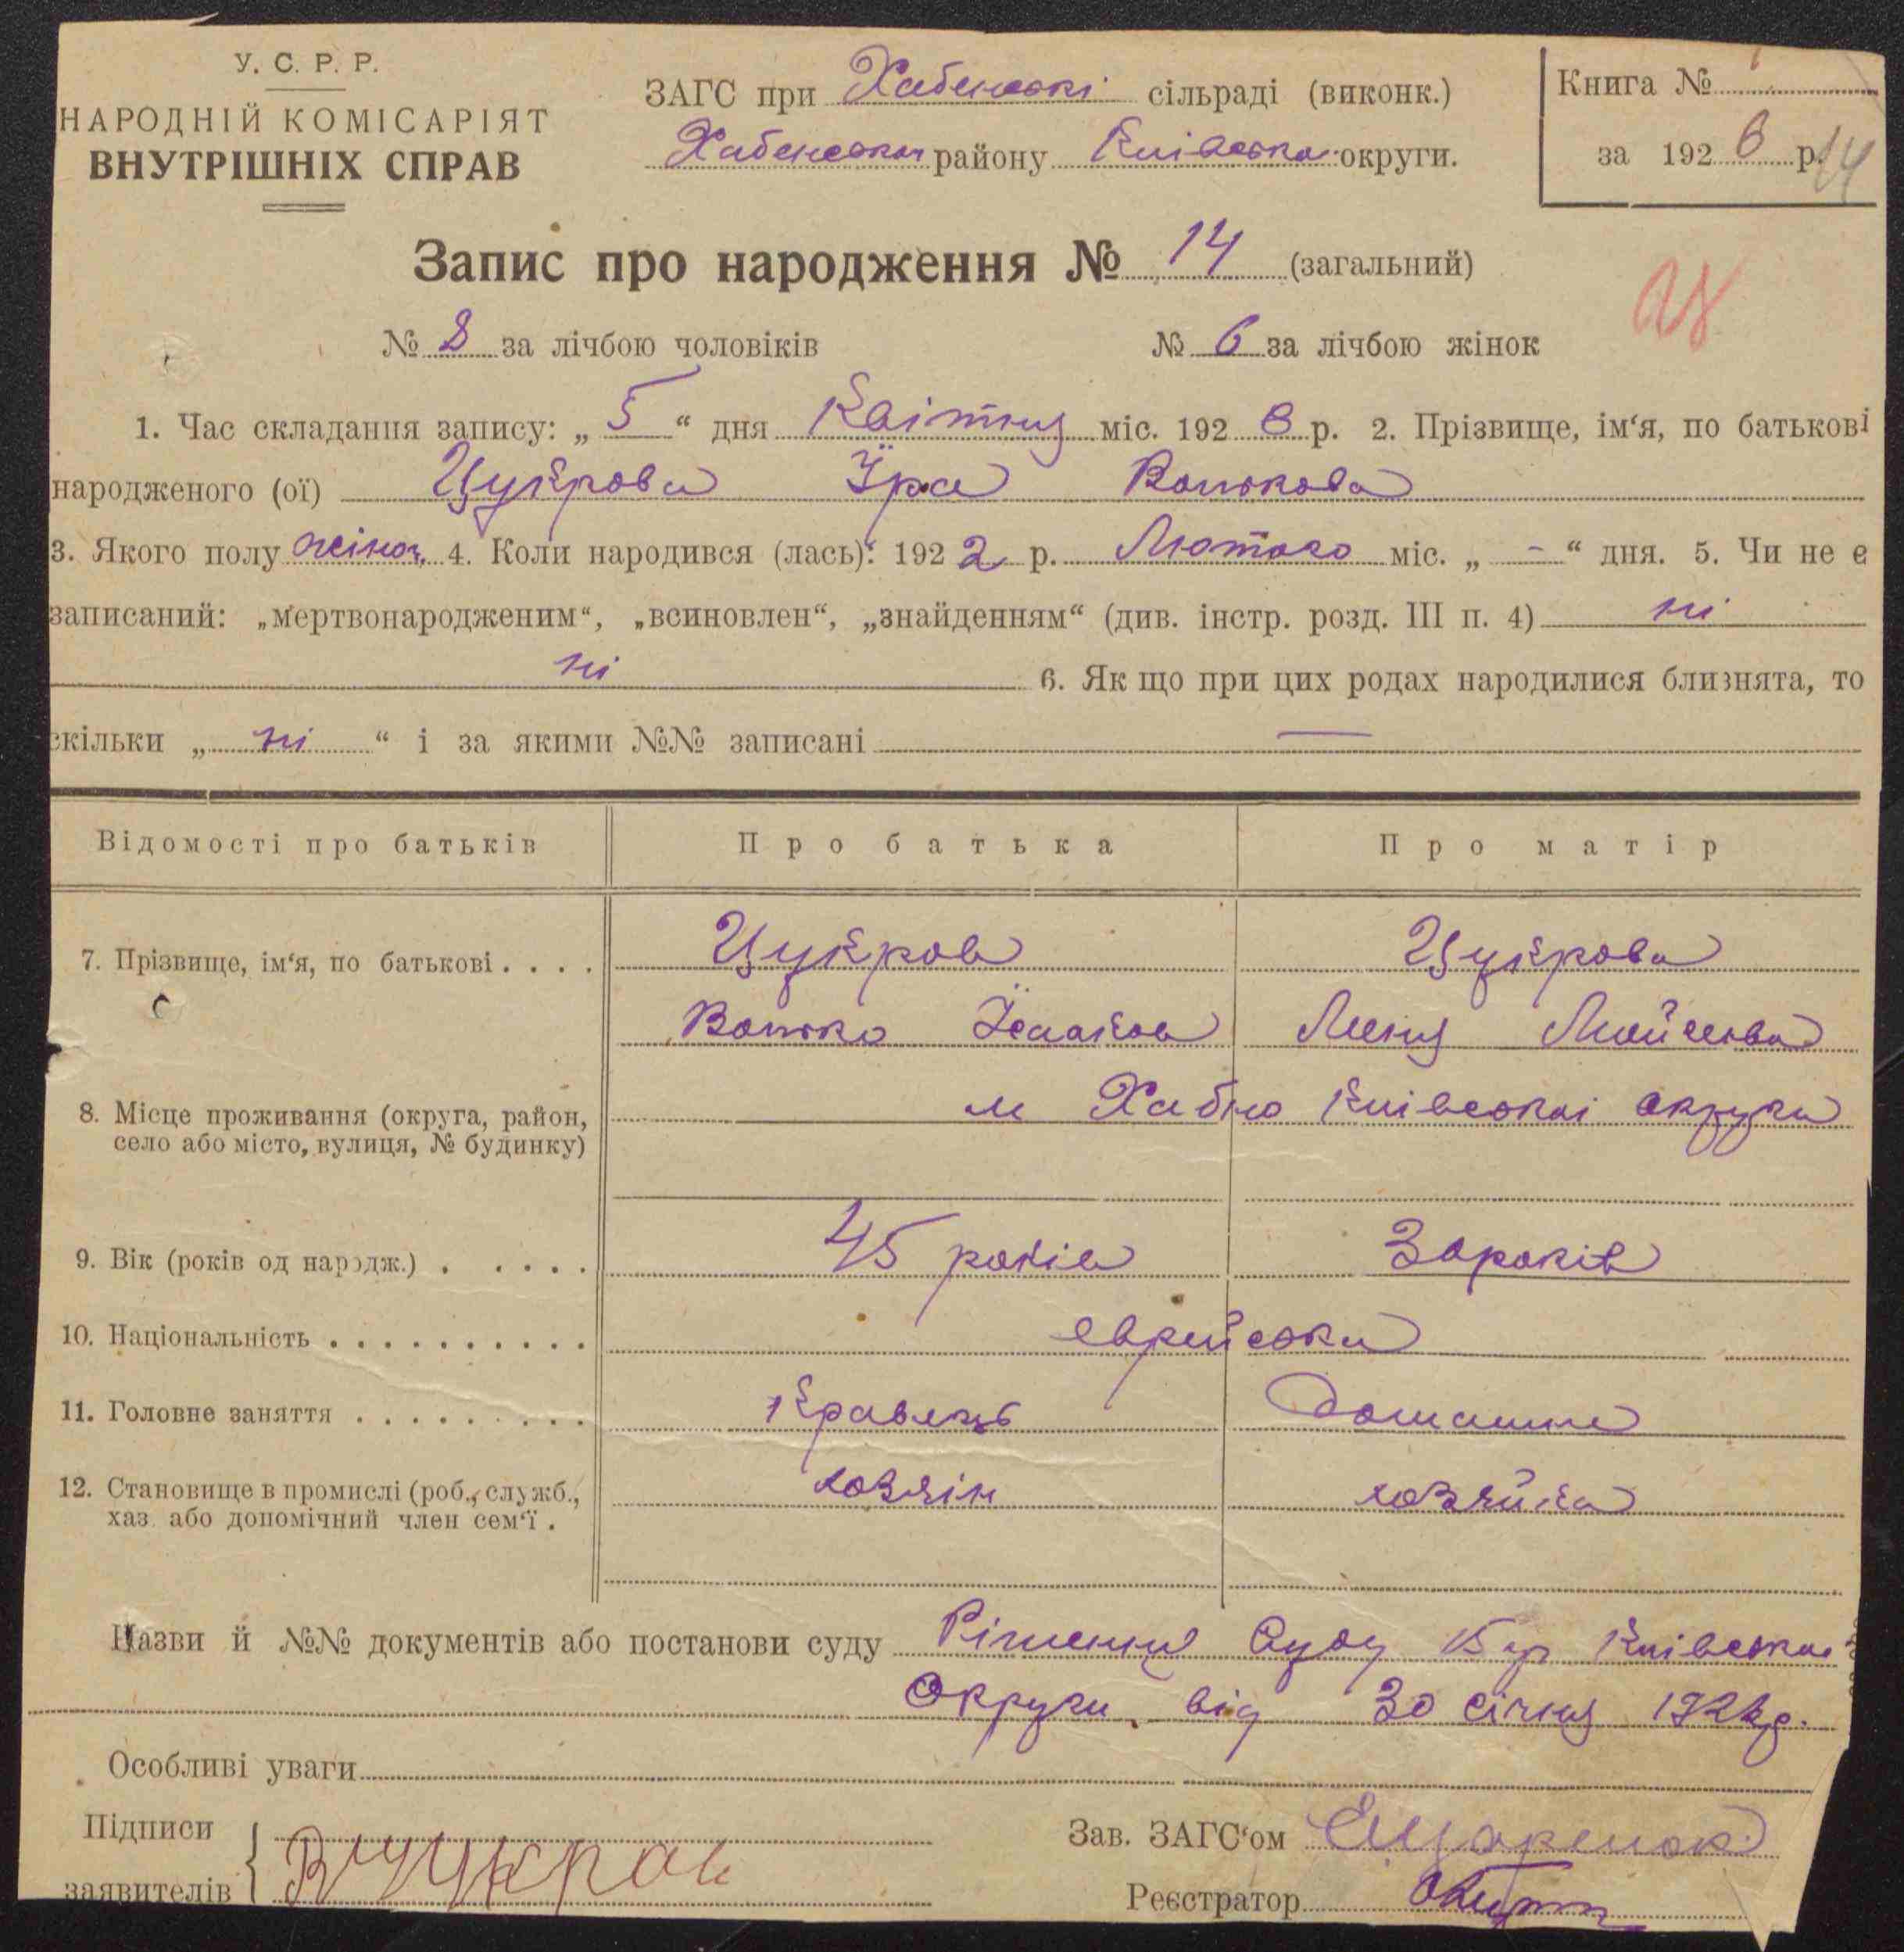 У. С. Р. Р.
НАРОДНІЙ КОМІСАРІЯТ
ВНУТРІШНІХ СПРАВ
ЗАГС при Хабенські сільраді (виконк.)
района Київська округи.
Книга №
за 1926 р. 14
Запис про народження № 14 (загальний)
28
№ 8 за лічбою чоловіків № 6 за лічбою жінок
1. Час складання запису: „ 5 “ дня Квітня міс. 1926 р. 2. Прізвище, ім‘я, по батькові
народженого (ої) Цукрова Їра Волькова
3. Якого полу жіноч. 4. Коли народився (лась): 1922 р. Лютого міс. „ - “ дня. 5. Чи не є
записаний: „мертвонародженим“, „всиновлен“, „знайденням“ (див. інстр. розд. III п. 4) ні
ні 6. Як що при цих родах народилися близнята, то
скільки „ ні “ і за якими №№ записані —
Відомості про батьків Про батька Про матір
7. Прізвище, ім‘я, по батькові . . . . Цукров Цукрова
Волько Їсааков Леня Мойсеева
8. Місце проживання (округа, район, м Хабно Київскоі округи
село або місто, вулиця, № будинку)
9. Вік (років од народж.) . . . . . 45 років 30 років
10. Національність . . . . . . . . . . еврейська
11. Головне заняття . . . . . . . . . Кравець Домашне
12. Становище в промислі (роб., служб., хозяін хозяйка
хаз. або допомічний член сем‘ї .
Назви й №№ документів або постанови суду Рішення Суду 15 Київськоі
Округи від 30 січня
Особливі уваги
Підписи
заявителів ВЦукров
Зав. ЗАГС‘ом
Реєстратор